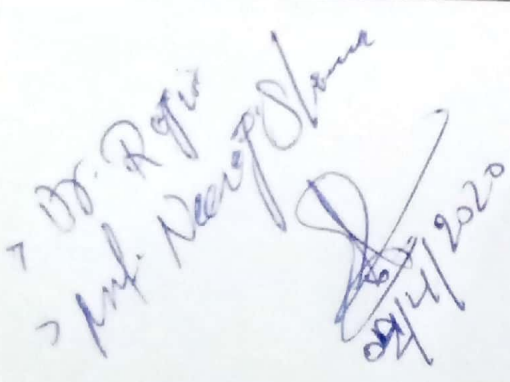 > Dr. Rajiv
> Prof. Neeraj Sharma
02/4/2020